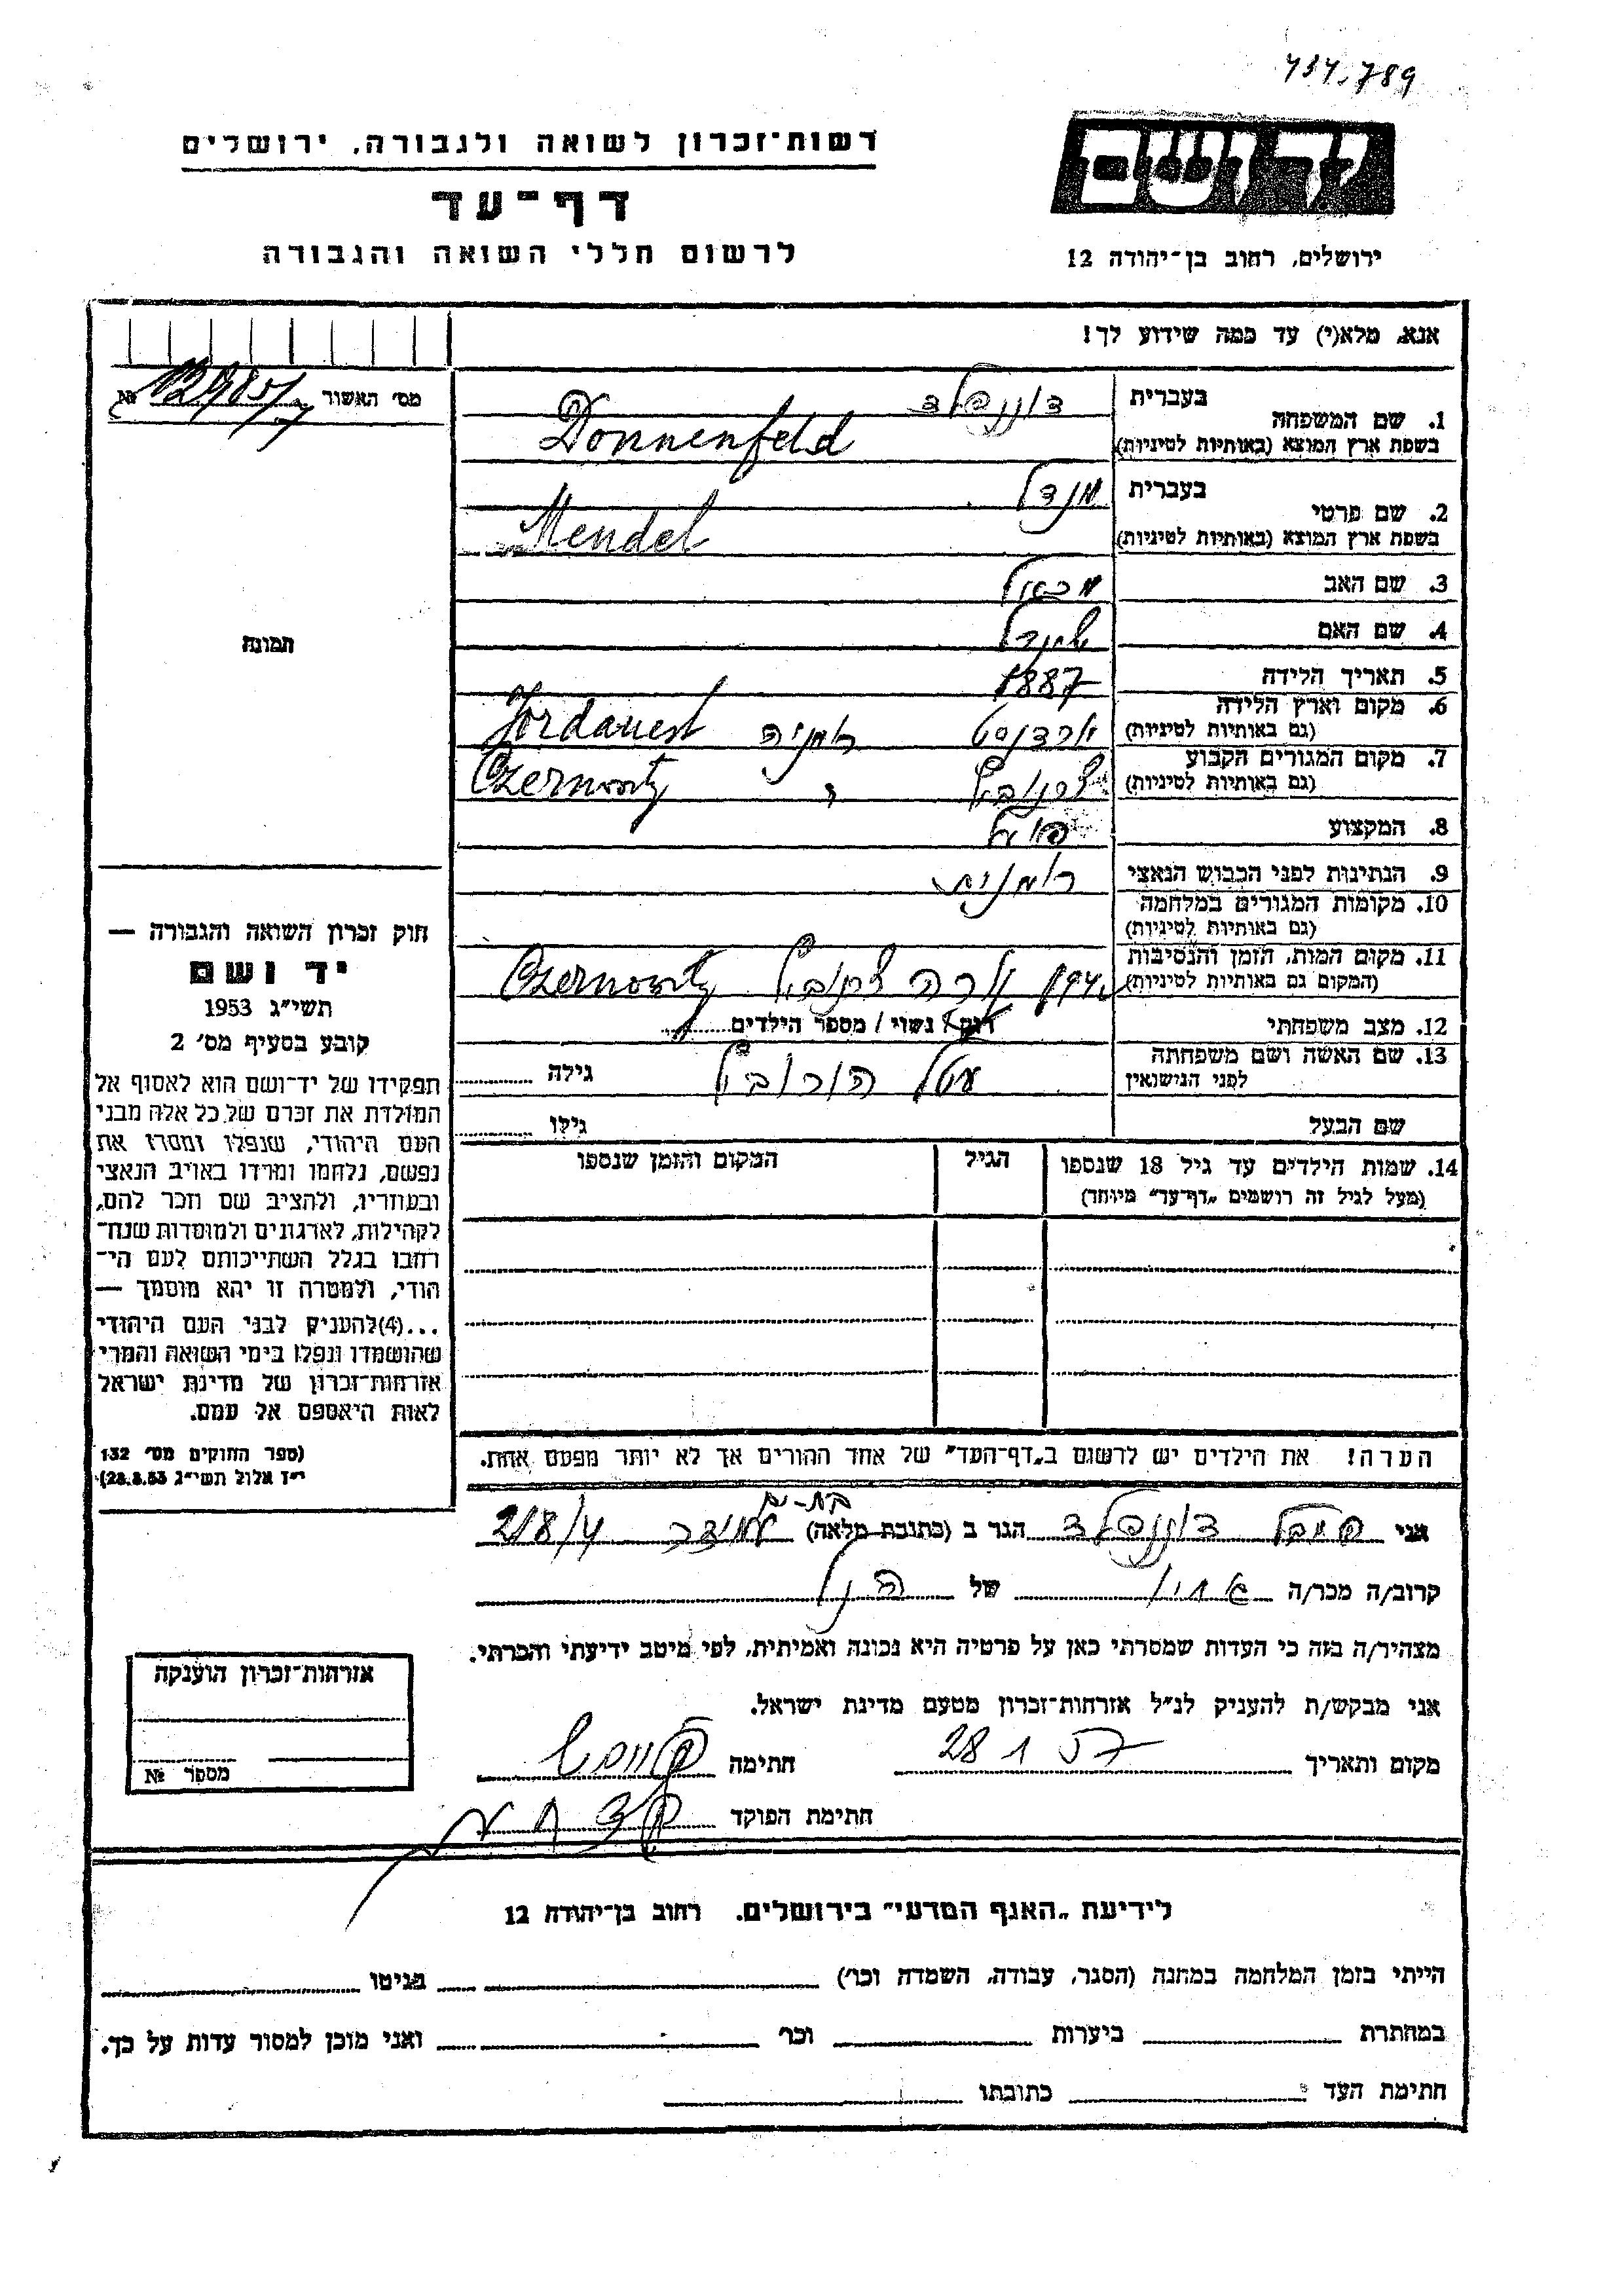 434.789
יד ושם
רשות־זכרון לשואה ולגבורה, ירושלים
דף־עד
לרשום חללי השואה והגבורה
ירושלים, רחוב בן־יהודה 12
אנא, מלא(י) עד כמה שידוע לך!
מס' האשור №
בעברית
1. שם המשפחה
דוננפלד
בשפת ארץ המוצא (באותיות לטיניות)
Donnenfeld
בעברית
מנדל
2. שם פרטי
בשפת ארץ המוצא (באותיות לטיניות)
Mendel
3. שם האב
4. שם האם
5. תאריך הלידה 1887
6. מקום וארץ הלידה
(גם באותיות לטיניות)
רומניה Jordanest
7. מקום המגורים הקבוע
(גם באותיות לטיניות)
צרנוביץ " Czernowitz
8. המקצוע
9. הנתינות לפני הכבוש הנאצי רומנית
10. מקומות המגורים במלחמה
(גם באותיות לטיניות)
11. מקום המות, הזמן והנסיבות
(המקום גם באותיות לטיניות)
צרנוביץ Czernowitz
12. מצב משפחתי רווק / נשוי / מספר הילדים
13. שם האשה ושם משפחתה
לפני הנישואין
עטל הורוביץ גילה
שם הבעל גילו
14. שמות הילדים עד גיל 18 שנספו
(מעל לגיל זה רושמים „דף־עד" מיוחד)
הגיל
המקום והזמן שנספו
הערה! את הילדים יש לרשום ב„דף־העד" של אחד ההורים אך לא יותר מפעם אחת.
תמונה
חוק זכרון השואה והגבורה —
יד ושם
תשי"ג 1953
קובע בסעיף מס' 2
תפקידו של יד־ושם הוא לאסוף אל
המולדת את זכרם של כל אלה מבני
העם היהודי, שנפלו ומסרו את
נפשם, נלחמו ומרדו באויב הנאצי
ובעוזריו, ולהציב שם וזכר להם,
לקהילות, לארגונים ולמוסדות שנח־
רבו בגלל השתייכותם לעם הי־
הודי, ולמטרה זו יהא מוסמך —
...(4)להעניק לבני העם היהודי
שהושמדו ונפלו בימי השואה והמרי
אזרחות־זכרון של מדינת ישראל
לאות היאספם אל עמם.
(ספר החוקים מס' 132
י"ז אלול תשי"ג 28.8.53)
בת-ים
אני דוננפלד הגר ב (כתובת מלאה) עמידר 218/4
קרוב/ה מכר/ה של הנ"ל
מצהיר/ה בזה כי העדות שמסרתי כאן על פרטיה היא נכונה ואמיתית, לפי מיטב ידיעתי והכרתי.
אני מבקש/ת להעניק לנ"ל אזרחות־זכרון מטעם מדינת ישראל.
מקום ותאריך 28 1 57 חתימה
חתימת הפוקד
אזרחות־זכרון הוענקה
מספר №
לידיעת „האגף המדעי" בירושלים. רחוב בן־יהודה 12
הייתי בזמן המלחמה במחנה (הסגר, עבודה, השמדה וכו') בגיטו
במחתרת ביערות וכו' ואני מוכן למסור עדות על כך.
חתימת העד כתובתו